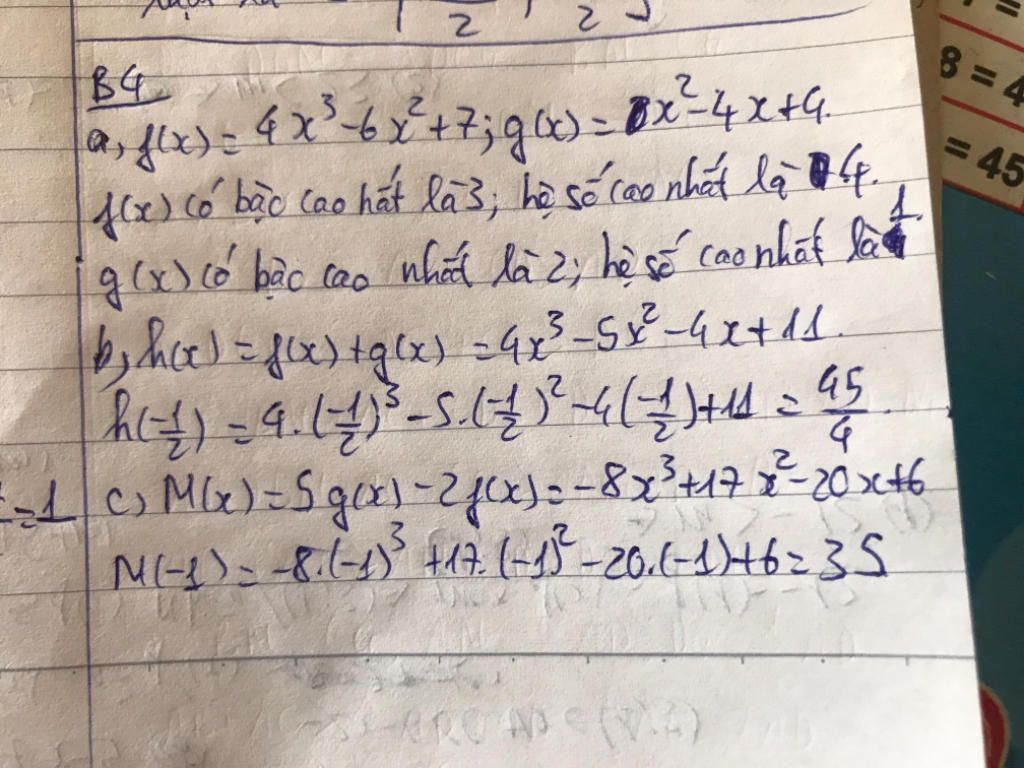 2 2
8 = 4
B4
= 45
a, f(x) = 4x³-6x²+7; g(x) = x²-4x+4.
f(x) có bậc cao hất là 3; hệ số cao nhất là 4.
g(x) có bậc cao nhất là 2; hệ số cao nhất là 1.
b, h(x) = f(x)+g(x) = 4x³-5x²-4x+11.
h(-1/2) = 4.(-1/2)³-5.(-1/2)²-4(-1/2)+11 = 45/4.
=1
c, M(x) = 5g(x)-2f(x) = -8x³+17x²-20x+6
M(-1) = -8.(-1)³+17.(-1)²-20.(-1)+6 = 35